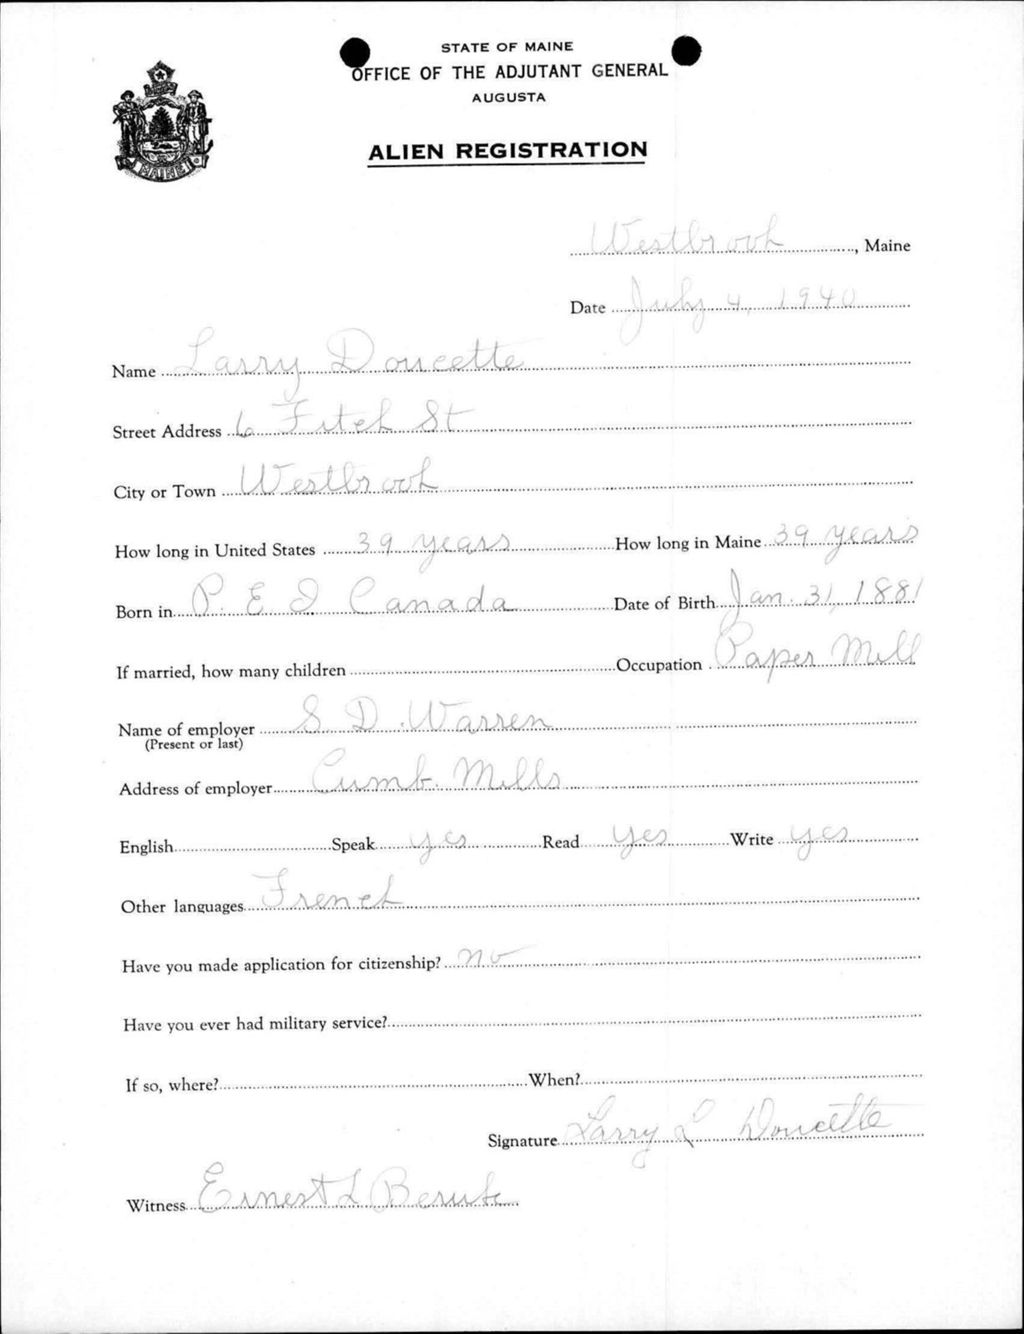 STATE OF MAINE
OFFICE OF THE ADJUTANT GENERAL
AUGUSTA
ALIEN REGISTRATION
MAINE
Westbrook, Maine
Date July 4, 1940
Name Larry Doucette
Street Address 6 Fitch St
City or Town Westbrook
How long in United States 39 years How long in Maine 39 years
Born in P. E I Canada Date of Birth Jan. 31, 1881
If married, how many children Occupation Paper Mill
Name of employer S D Warren
(Present or last)
Address of employer Cumb. Mills
English Speak yes Read yes Write yes
Other languages French
Have you made application for citizenship? no
Have you ever had military service?
If so, where? When?
Signature Larry L Doucette
Witness Ernest L Berube